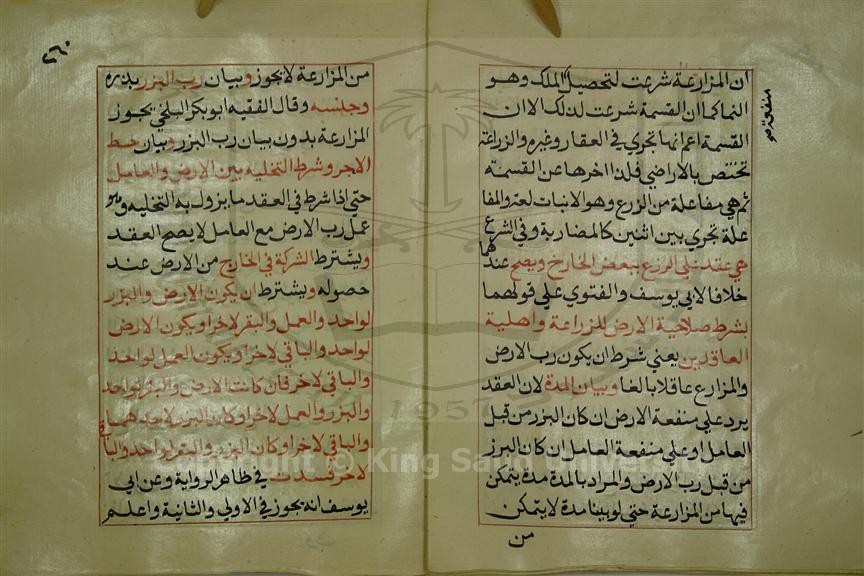 ان المزارعة شرعت لتحصيل الملك وهو
النما كما ان القسمة شرعت لذلك الا ان
القسمة اعم انها تجري في العقار وغيره والزراعة
تختص بالاراضي فلذا اخرها عن القسمة
ثم هي مفاعلة من الزرع وهو الانبات لغة والمفا
علة تجري بين اثنين كالمضاربة وفي الشرع
هي عقد علي الزرع ببعض الخارج ويصح عندهما
خلافا لابي يوسف والفتوي علي قولهما
بشرط صلاحية الارض للزراعة واهلية
العاقدين يعني شرط ان يكون رب الارض
والمزارع عاقلا بالغا وبيان المدة لان العقد
يرد علي منفعة الارض ان كان البزر من قبل
العامل او علي منفعة العامل ان كان البزر
من قبل رب الارض والمراد بالمدة مدة يتمكن
فيها من المزارعة حتي لو بينا مدة لا يتمكن
من
منفعة
٢٦٠
من المزارعة لا يجوز وبيان رب البزر بذره
وجنسه وقال الفقيه ابو بكر البلخي يجوز
المزارعة بدون بيان رب البزر وبيان حظ
الاجر وشرط التخليه بين الارض والعامل
حتي اذا شرط في العقد ما يزول به التخليه وهو
عمل رب الارض مع العامل لا يصح العقد
ويشترط الشركة في الخارج من الارض عند
حصوله ويشترط ان يكون الارض والبزر
لواحد والعمل والبقر لاخر او يكون الارض
لواحد والباقي لاخر او يكون العمل لواحد
والباقي لاخر فان كانت الارض والبقر لواحد
والبزر والعمل لاخر او كان البزر لاحدهما
والباقي لاخر او كان البزر والبقر لواحد والباقي
لاخر فسدت في ظاهر الرواية وعن ابي
يوسف انه يجوز في الاولي والثانية واعلم
1957
Copyright © King Saud University